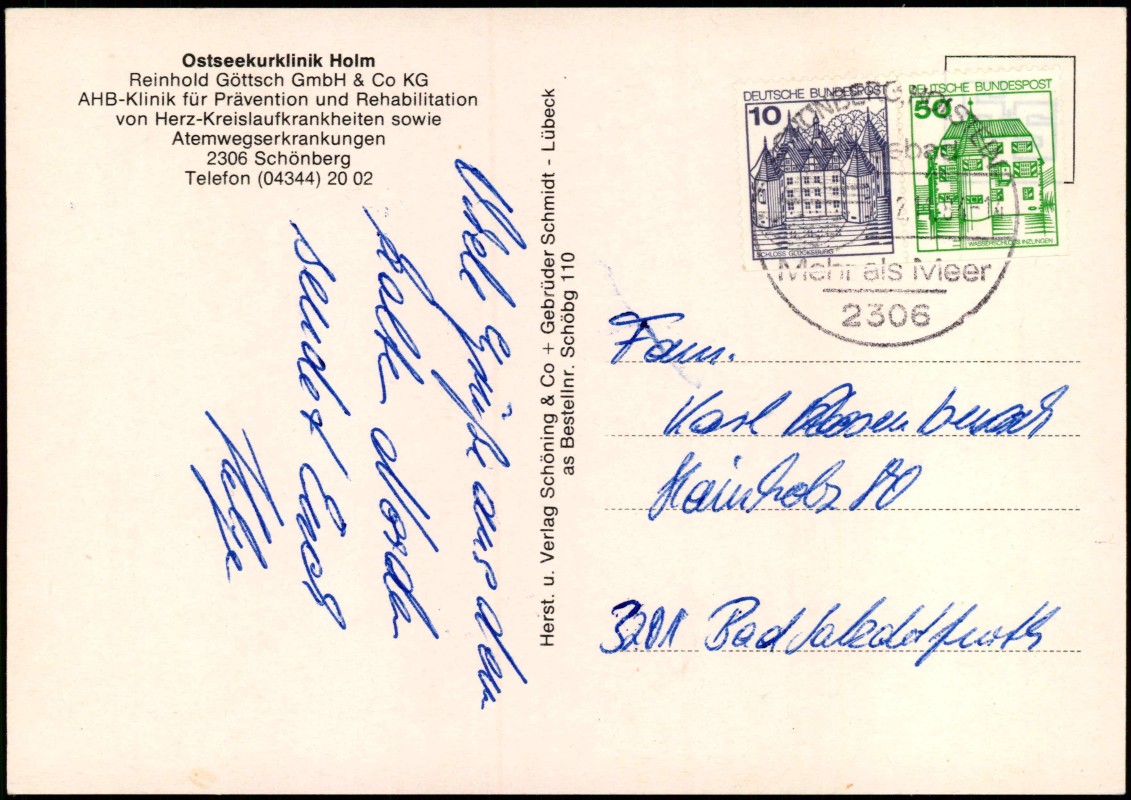 Ostseekurklinik Holm
Reinhold Göttsch GmbH & Co KG
AHB-Klinik für Prävention und Rehabilitation
von Herz-Kreislaufkrankheiten sowie
Atemwegserkrankungen
2306 Schönberg
Telefon (04344) 20 02
Viele Grüße aus dem
kalten Norden
sendet Euch
Herst. u. Verlag Schöning & Co + Gebrüder Schmidt - Lübeck
as Bestellnr. Schöbg 110
DEUTSCHE BUNDESPOST
10
SCHLOSS GLÜCKSBURG
DEUTSCHE BUNDESPOST
50
WASSERSCHLOSS INZLINGEN
Mehr als Meer
2306
Fam.
Karl
Hainholz
3201 Bad Salzdetfurth